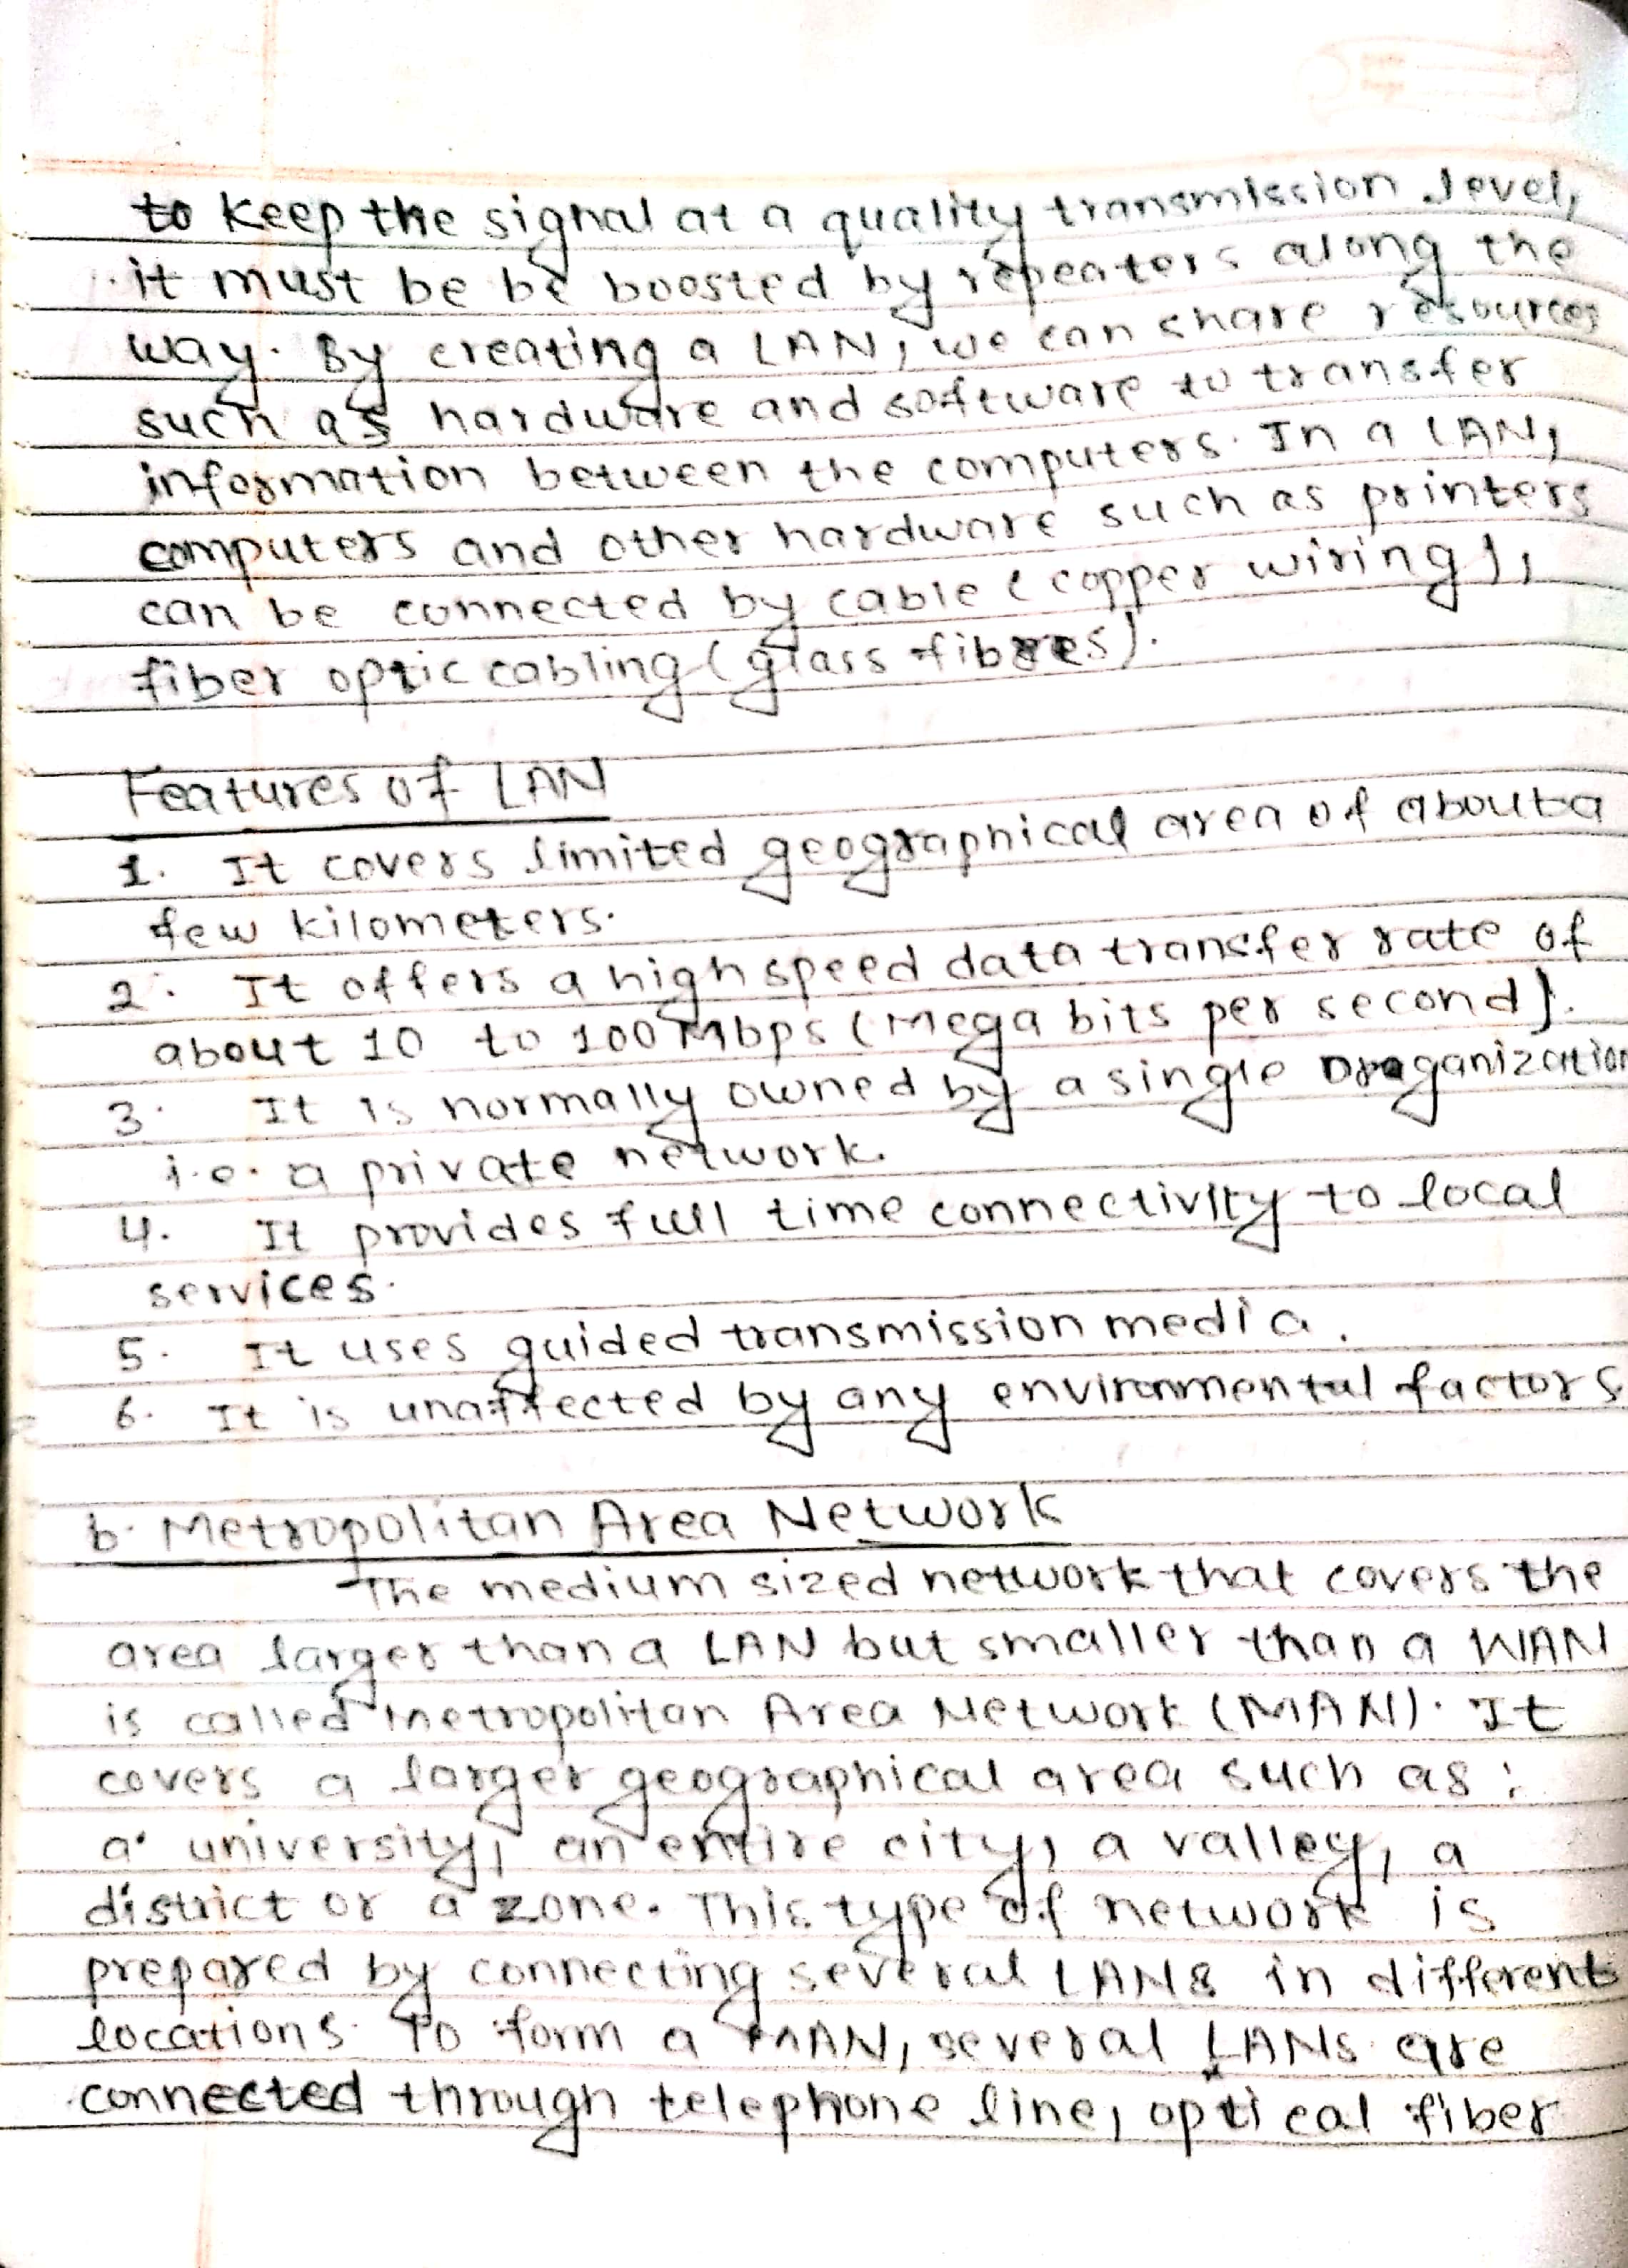 to keep the signal at a quality transmission level,
it must be be boosted by repeaters along the
way. By creating a LAN, we can share resources
such as hardware and software to transfer
information between the computers. In a LAN,
computers and other hardware such as printers
can be connected by cable (copper wiring),
fiber optic cabling (glass fibres).
Features of LAN
1. It covers limited geographical area of about a
few kilometers.
2. It offers a high speed data transfer rate of
about 10 to 100 Mbps (Mega bits per second).
3. It is normally owned by a single Oroganization
i.e. a private network.
4. It provides full time connectivity to local
services.
5. It uses guided transmission media.
6. It is unaffected by any environmental factors
b. Metropolitan Area Network
The medium sized network that covers the
area larger than a LAN but smaller than a WAN
is called metropolitan Area Network (MAN). It
covers a larger geographical area such as:
a university, an entire city, a valley, a
district or a zone. This type of network is
prepared by connecting several LANs in different
locations. To form a MAN, several LANs are
connected through telephone line, optical fiber